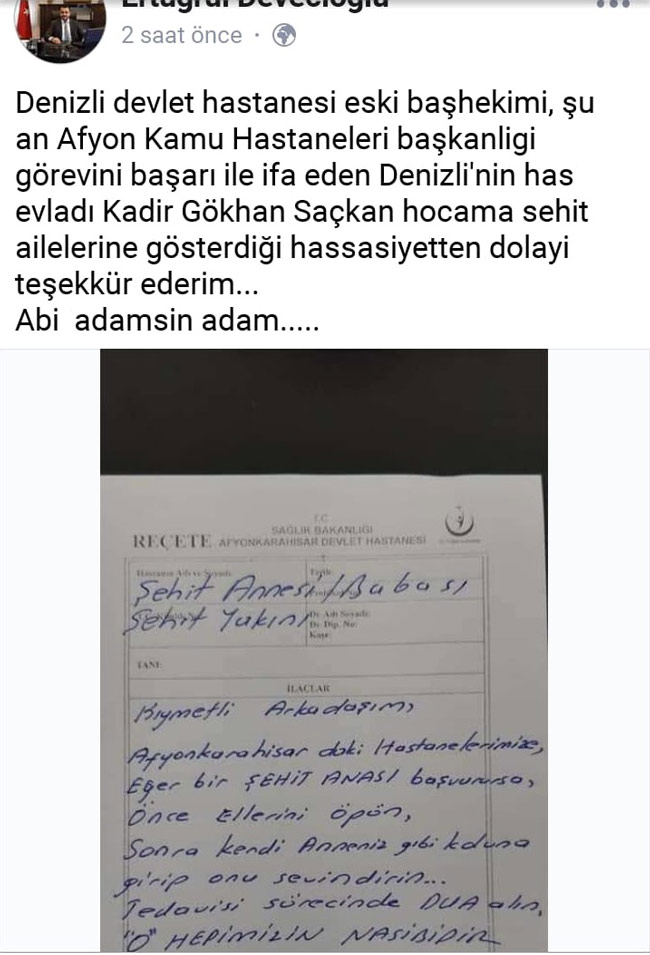 Ertuğrul Devecioğlu
2 saat önce ·
Denizli devlet hastanesi eski başhekimi, şu
an Afyon Kamu Hastaneleri başkanligi
görevini başarı ile ifa eden Denizli'nin has
evladı Kadir Gökhan Saçkan hocama sehit
ailelerine gösterdiği hassasiyetten dolayi
teşekkür ederim...
Abi adamsin adam.....
T.C
SAĞLIK BAKANLIĞI
REÇETE AFYONKARAHİSAR DEVLET HASTANESİ
Hastanın Adı ve Soyadı: Tarih:
Şehit Annesi/Babası
Şehit Yakını
Dr. Adı Soyadı:
Dr. Dip. No:
Kaşe:
TANI:
İLAÇLAR
Kıymetli Arkadaşım,
Afyonkarahisar daki Hastanelerimize,
Eğer bir ŞEHİT ANASI başvurursa,
Önce Ellerini öpün,
Sonra kendi Anneniz gibi koluna
girip onu sevindirin...
Tedavisi sürecinde DUA alın,
"O" HEPİMİZİN NASİBİDİR